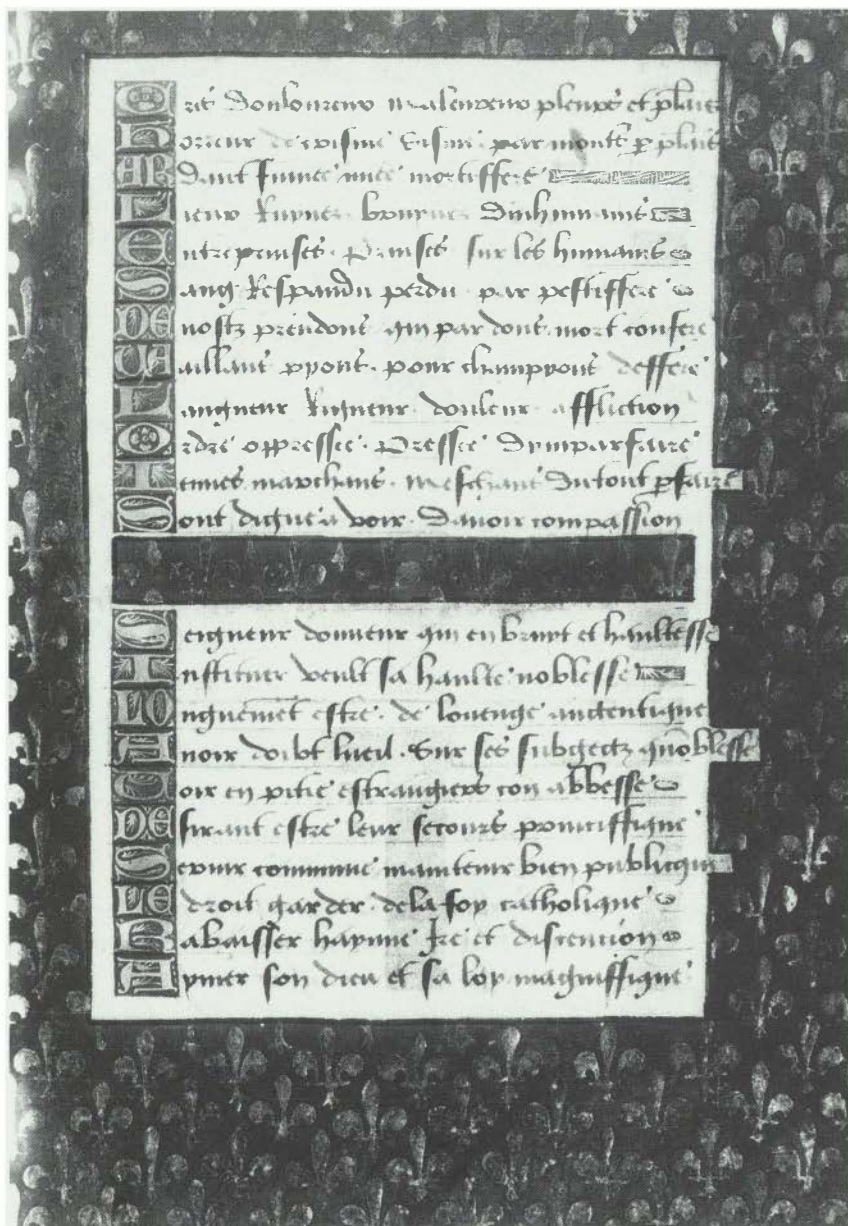 Cris Douloureux maleureux pleurs et plains
Horreur de voisine par monts p plains
ARdant fumee nuee mortiffere
Lieux Ruynez Dinhumains
Entreprinses. Prinses sur les humains
Sang Respandu perdu par pestiffere
DEnostz prendont qui par dont mort confere
VAillans pyons. pour champyons deffere
Langueur Rigueur. douleur affliction
Ordre oppressee. Pressee Dymparfaire
Iennes marchans. Meschans Dutout pfaire
Sont digne a voir. Davoir compassion
Seigneur donneur qui en bruyt et haultesse
Instituer veult sa haulte noblesse
LOnguemēt estre. de louenge auctentique
Avoir doibt lueil. Sur ses subgectz quoblesse
Voir en pitie estrangiers con abbesse
DEsirant estre leur secours
commune maintenir bien publicque
LE droit garder. dela foy catholique
Rabaisser haynne Ire et discention
Aymer son dieu et sa loy magniffique